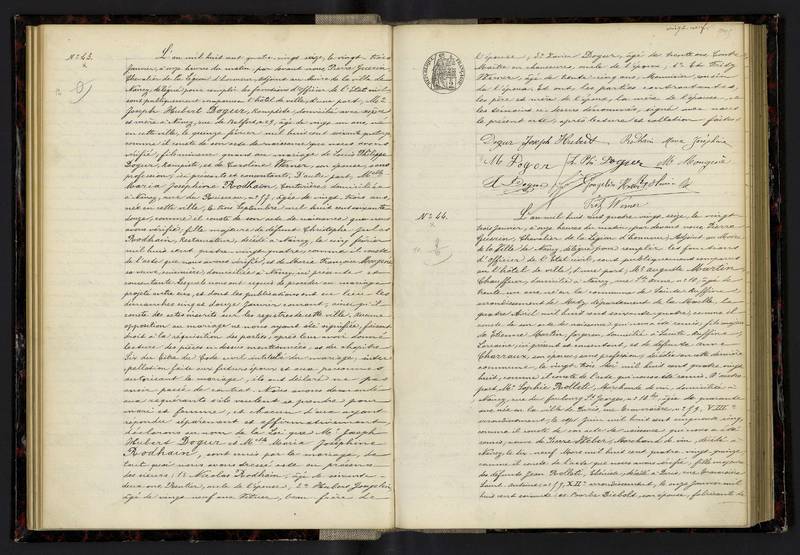 N° 43.
L'an mil huit cent quatre-vingt seize, le vingt-trois
Janvier, à onze heures du matin, par devant nous Pierre Guérin,
Chevalier de la Légion d'honneur, Adjoint au Maire de la ville de
Nancy, délégué pour remplir les fonctions d'Officier de l'Etat civil
sont publiquement comparus en l'hôtel de ville, d'une part, Mr
Joseph Hubert Dogué, Comptable, domicilié avec ses père
et mère à Nancy, rue de Belfort, n° 29, âgé de vingt un ans, né
en cette ville, le quinze février mil huit cent soixante quatorze
comme il conste de son acte de naissance que nous avons
vérifié, fils mineur quant au mariage de Louis Philippe
Dogué, Comptable, et de Caroline Werner son épouse, sans
profession, ici présents et consentants. D'autre part, Melle
Maria Joséphine Rodhain, Couturière, domiciliée
à Nancy, rue du Ruisseau, n° 91, âgée de vingt trois ans,
née en cette ville, le Septembre mil huit cent soixante
douze, comme il conste de son acte de naissance que nous
avons vérifié, fille majeure de défunt Christophe
Rodhain, Restaurateur, décédé à Nancy, le cinq février
mil huit cent quatre-vingt quatre, comme il conste
de l'acte que nous avons vérifié, et de Marie Françoise Mougenot
sa veuve, domiciliée à Nancy, ici présente et
consentante. Lesquels nous ont requis de procéder au mariage
projeté entre eux, et dont les publications ont eu lieu les
dimanches cinq et douze Janvier courant, ainsi qu'il
conste des actes inscrits sur les registres de cette ville. Aucune
opposition au mariage ne nous ayant été signifiée, faisant
droit à la réquisition des parties, après leur avoir donné
lecture des pièces ci-dessus mentionnées, et du chapitre
six du titre du Code civil intitulé du mariage, inter-
pellation faite aux futurs époux et aux personnes
autorisant le mariage, ils ont déclaré ne pas
avoir passé de contrat. Nous avons demandé
aux requérants s'ils veulent se prendre pour
mari et femme, et chacun d'eux ayant
répondu séparément et affirmativement
déclarons au nom de la Loi que Mr Joseph
Hubert Dogué et Melle Maria Joséphine
Rodhain, sont unis par le mariage, de
tout quoi nous avons dressé acte en présence
des sieurs, 1° Nicolas Rodhain, âgé de soixante
deux ans, Rentier, oncle de l'épouse, 2° Hubert Jongelin
âgé de vingt neuf ans, beau frère de
vingt-neuf.
l'épouse, 3° Xavier Dogué, âgé de trente ans, Contre-
Maître en chaussures, oncle de l'époux, 4° et
Werner, âgé de trente cinq ans, Menuisier, cousin
de l'époux. Et ont, les parties contractantes,
les père et mère de l'époux, la mère de l'épouse, et
les témoins ci-dessus dénommés, signé avec nous
le présent acte, après lecture et collation faites
Dogué Joseph Hubert Rodhain Maria Joséphine
M. Mougenot
Jongelin
Werner
N° 44.
L'an mil huit cent quatre-vingt seize, le vingt
trois Janvier, à onze heures du matin, par devant nous Pierre
Guérin, Chevalier de la Légion d'honneur, Adjoint au Maire
de la Ville de Nancy, délégué pour remplir les fonctions
d'officier de l'Etat civil, sont publiquement comparus
en l'hôtel de ville, d'une part, Mr Auguste Martin,
Chauffeur, domicilié à Nancy, rue Ste Anne, n° 10, âgé de
trente un ans, né en la commune de Sainte Ruffine,
arrondissement de Metz, département de la Moselle, le
quatre Avril mil huit cent soixante quatre, comme il
conste de son acte de naissance qui nous a été remis, fils majeur
de Etienne Martin, domicilié à Sainte Ruffine,
Lorraine, ici présent et consentant, et de défunte Anne
Charraux, son épouse, sans profession, décédée en cette dernière
commune, le vingt trois mil huit cent quatre vingt
huit, comme il conste de l'acte qui nous a été remis. D'autre
part, Me Sophie Rollet, Marchande de vin, domiciliée à
Nancy, rue du faubourg St Georges, n° 12, âgée de quarante
ans, née en la ville de Paris,
arrondissement, le Juin mil huit cent cinquante cinq,
comme il conste de son acte de naissance qui nous a été
remis, veuve de Pierre Weber, Marchand de vin, décédé à
Nancy, le dix-neuf Mars mil huit cent quatre vingt quinze
comme il conste de l'acte que nous avons vérifié, fille majeure
de défunts Jean Rollet, Ebéniste, décédé à Paris, rue
Saint Antoine, n° 99, XIIe arrondissement, le onze Janvier mil
huit cent soixante et Barbe Diebold, son épouse, fabricante de